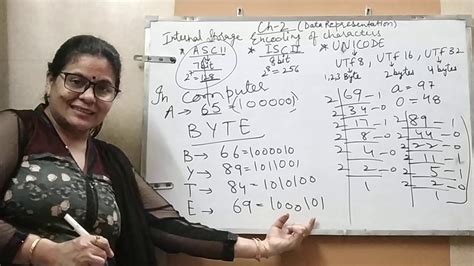 Ch-2 (Data Representation)
Internal Storage Encoding of characters
* ASCII * ISCII * UNICODE
7bit 8bit UTF8, UTF 16, UTF 32
2⁷=128 2⁸=256 1,2,3 Byte 2bytes 4 bytes
In Computer
a = 97
0 = 48
A → 65 = (1000001)
BYTE
B → 66=1000010
Y → 89=1011001
T → 84=1010100
E → 69=1000101
2 69-1
2 34-0
2 17-1
2 8-0
2 4-0
2 2-0
1
2 89-1
2 44-0
2 22-0
2 11-1
2 5-1
2 2-0
1